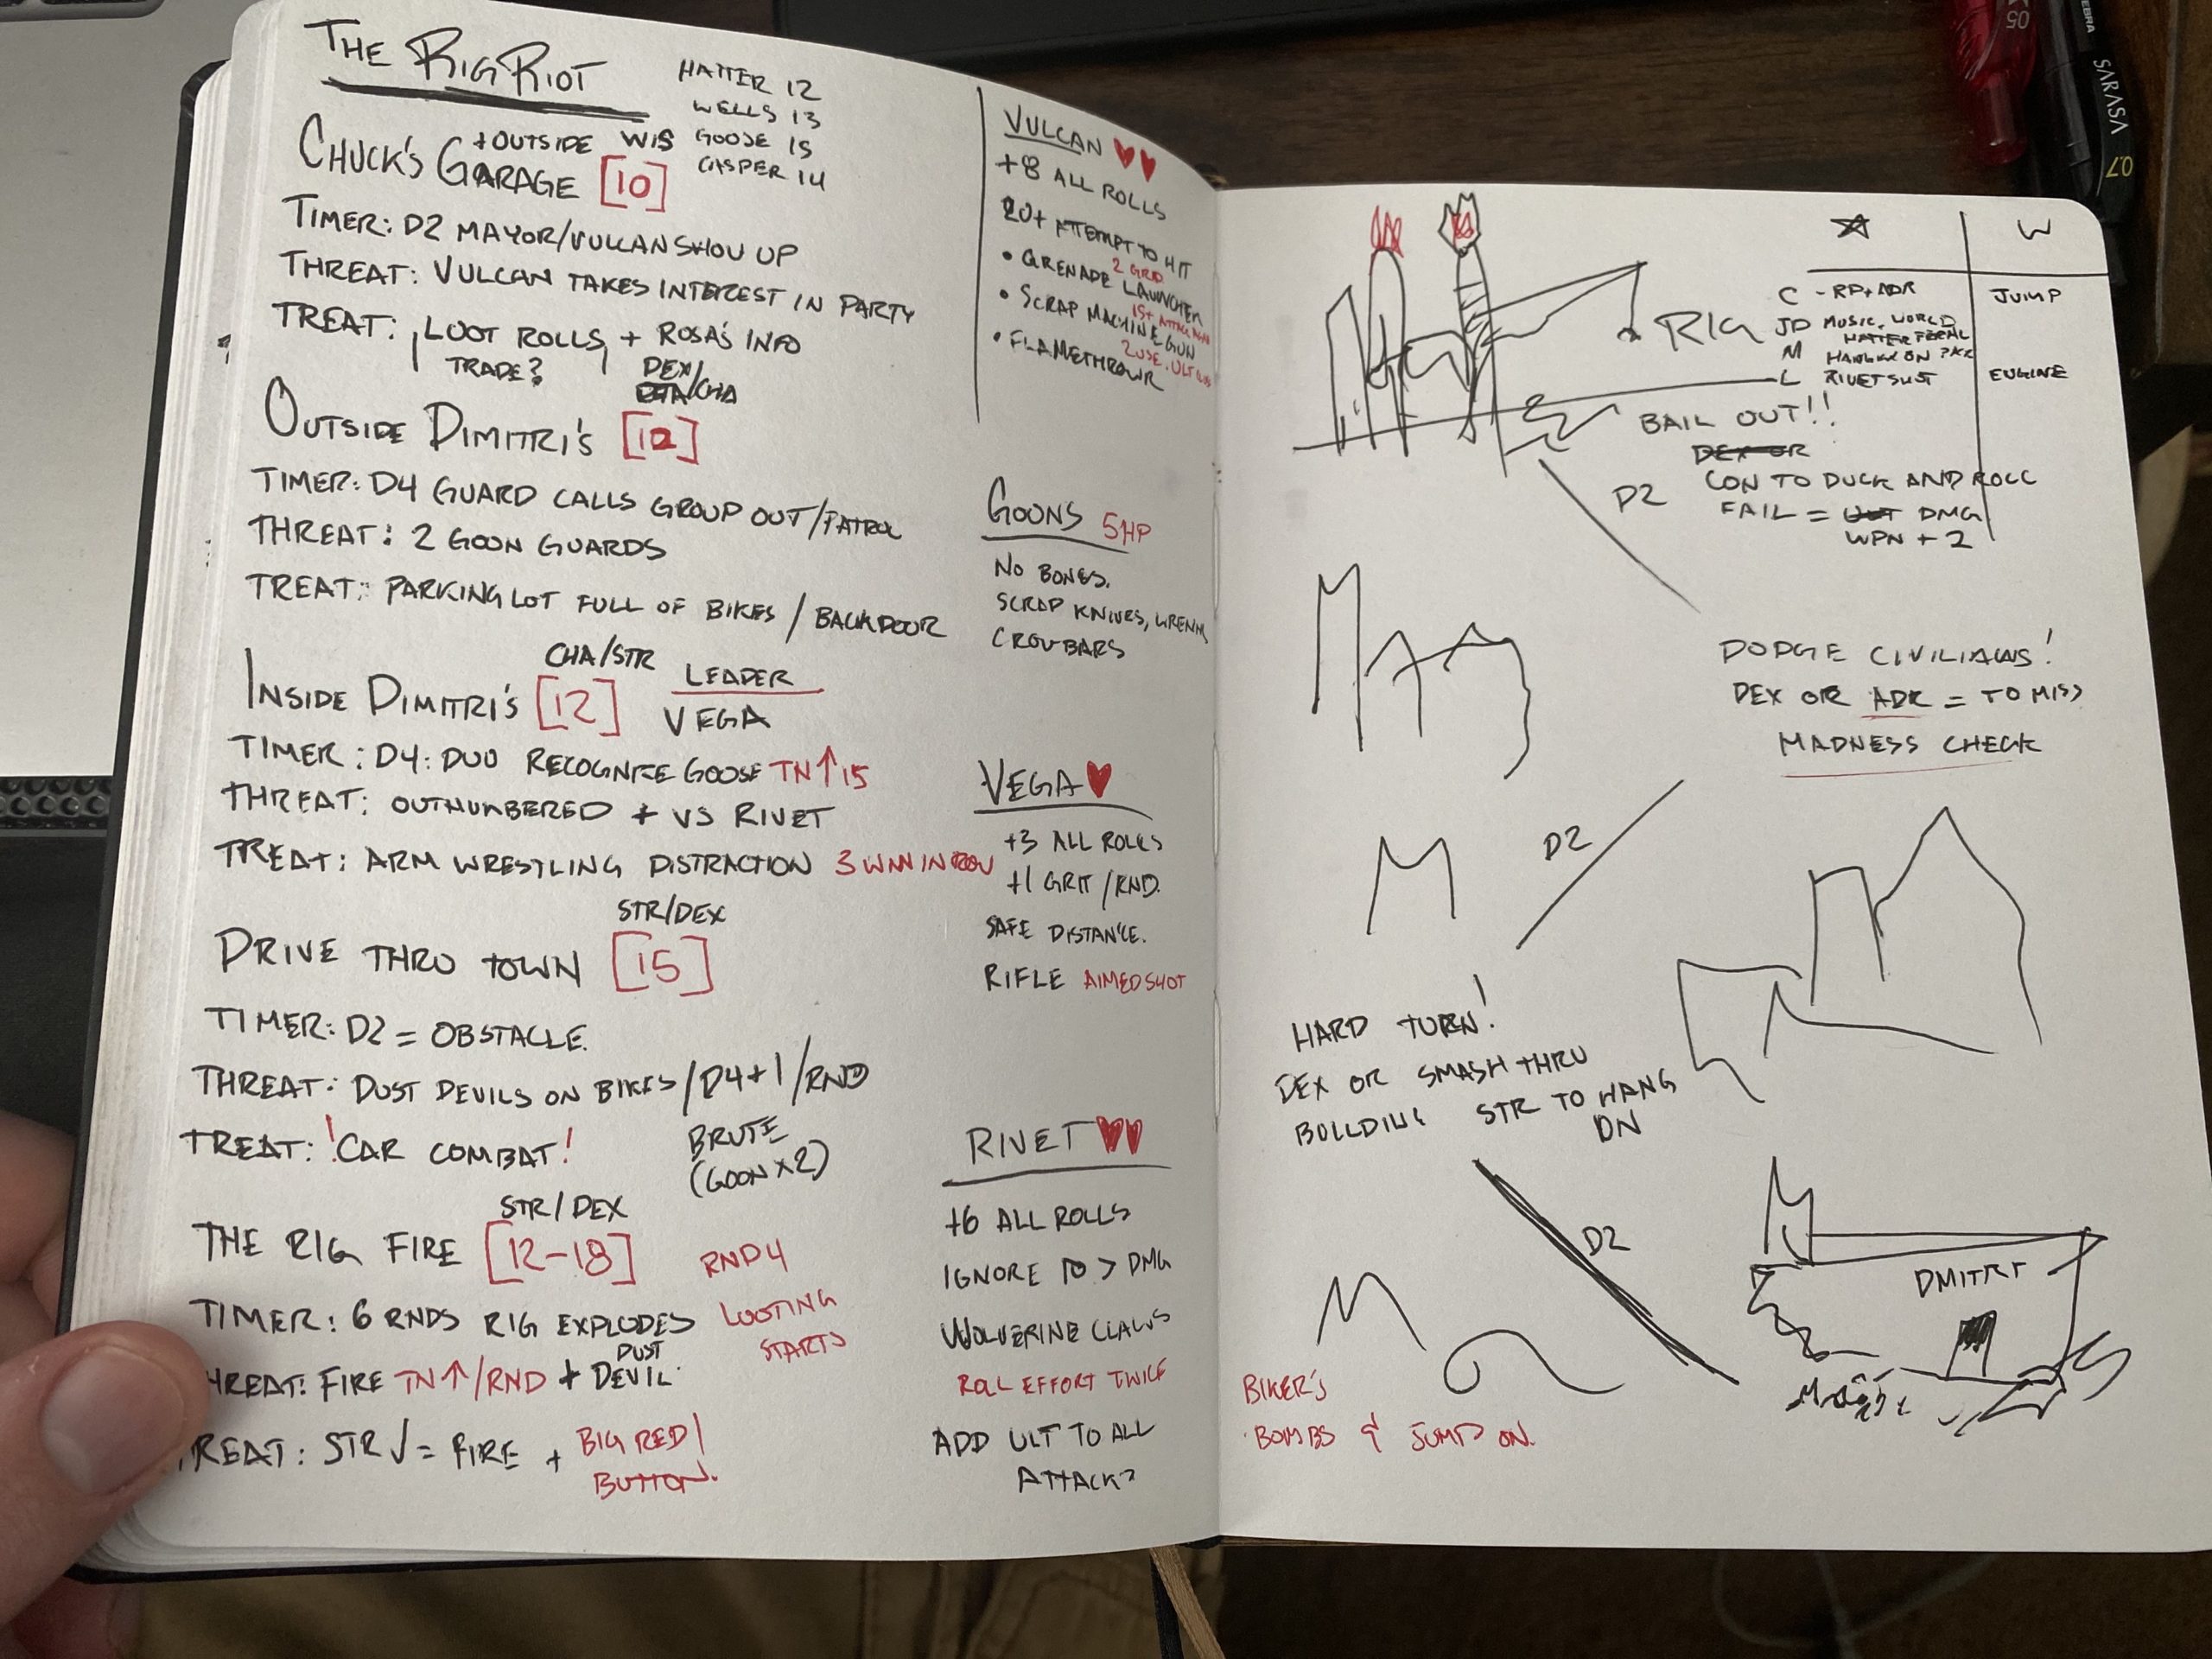 THE RIG RIOT
HATTER 12
WELLS 13
GOOSE 15
CASPER 14
+OUTSIDE WIS
CHUCK'S GARAGE [10]
TIMER: D2 MAYOR/VULCAN SHOW UP
THREAT: VULCAN TAKES INTEREST IN PARTY
TREAT: LOOT ROLLS + ROSA'S INFO
TRADE?
DEX/
CHA
OUTSIDE DIMITRI'S [12]
TIMER: D4 GUARD CALLS GROUP OUT/PATROL
THREAT: 2 GOON GUARDS
TREAT: PARKING LOT FULL OF BIKES / BACKDOOR
CHA/STR
INSIDE DIMITRI'S [12]
LEADER
VEGA
TIMER: D4: DUO RECOGNIZE GOOSE TN↑15
THREAT: OUTNUMBERED + VS RIVET
TREAT: ARM WRESTLING DISTRACTION 3 WIN IN ROW
STR/DEX
DRIVE THRU TOWN [15]
TIMER: D2 = OBSTACLE.
THREAT: DUST DEVILS ON BIKES/D4+1/RND
TREAT: !CAR COMBAT!
BRUTE
(GOON X2)
STR/DEX
THE RIG FIRE [12-18]
RND 4
LOOTING
STARTS
TIMER: 6 RNDS RIG EXPLODES
DUST
HREAT: FIRE TN↑/RND + DEVIL
REAT: STR √ = FIRE + BIG RED
BUTTON.
VULCAN ♥♥
+8 ALL ROLLS
20+ ATTEMPT TO HIT
2 GRID
• GRENADE LAUNCHER
15+ ATTACK AGAIN
• SCRAP MACHINE GUN
2 USE. ULT
• FLAMETHROWR
GOONS 5HP
NO BONES.
SCRAP KNIVES, WRENH
CROWBARS
VEGA ♥
+3 ALL ROLLS
+1 GRIT /RND.
SAFE DISTANCE.
RIFLE AIMED SHOT
RIVET ♥♥
+6 ALL ROLLS
IGNORE 10 > DMG
WOLVERINE CLAWS
ROLL EFFORT TWICE
ADD ULT TO ALL
ATTACKS
☆ W
C - RP+ADR JUMP
JD MUSIC, WORLD
HATTER FERAL
M
L RIVET SHOT ENGINE
RIG
BAIL OUT!!
DEX OR
CON TO DUCK AND ROLL
FAIL = DMG
WPN + 2
D2
DODGE CIVILIANS!
DEX OR ADR = TO MISS
MADNESS CHECK
D2
HARD TURN!
DEX OR SMASH THRU
BUILDING STR TO HANG
ON
D2
DMITRI
BIKER'S
BOMBS & JUMP ON.